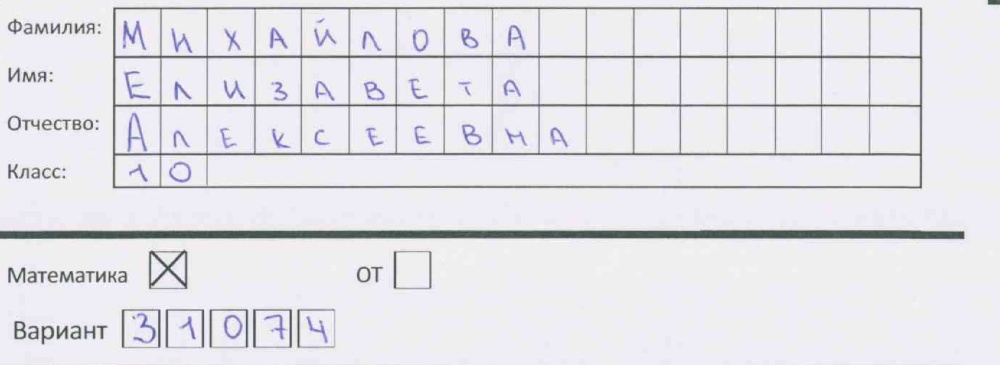 Фамилия: МИХАЙЛОВА
Имя: ЕЛИЗАВЕТА
Отчество: АЛЕКСЕЕВНА
Класс: 10
Математика ☒ ОТ ☐
Вариант 31074